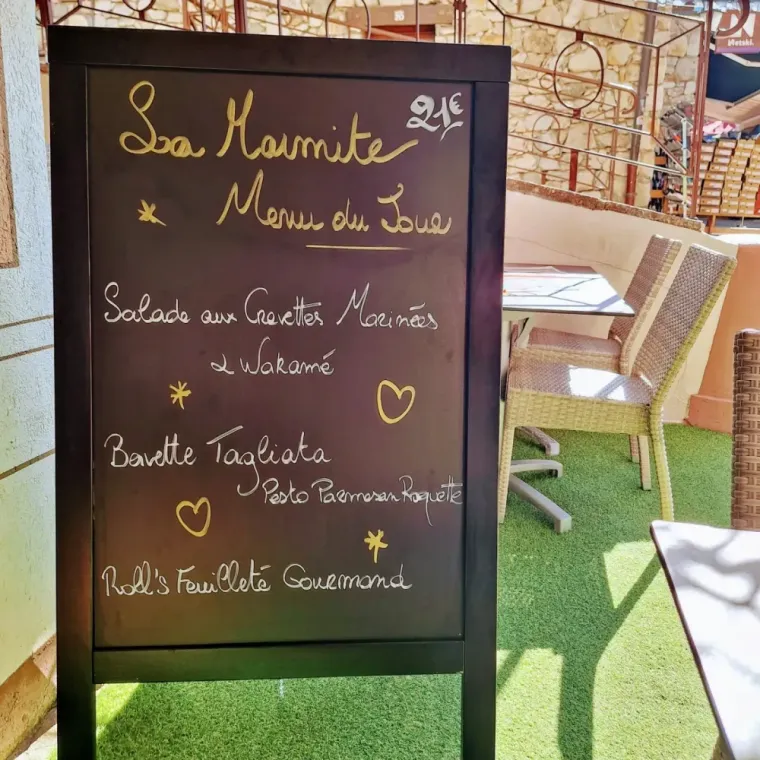 La Marmite 21€
Menu du Jour
Salade aux Crevettes Marinées
& Wakamé
Bavette Tagliata
Pesto Parmesan Roquette
Roll's Feuilleté Gourmand